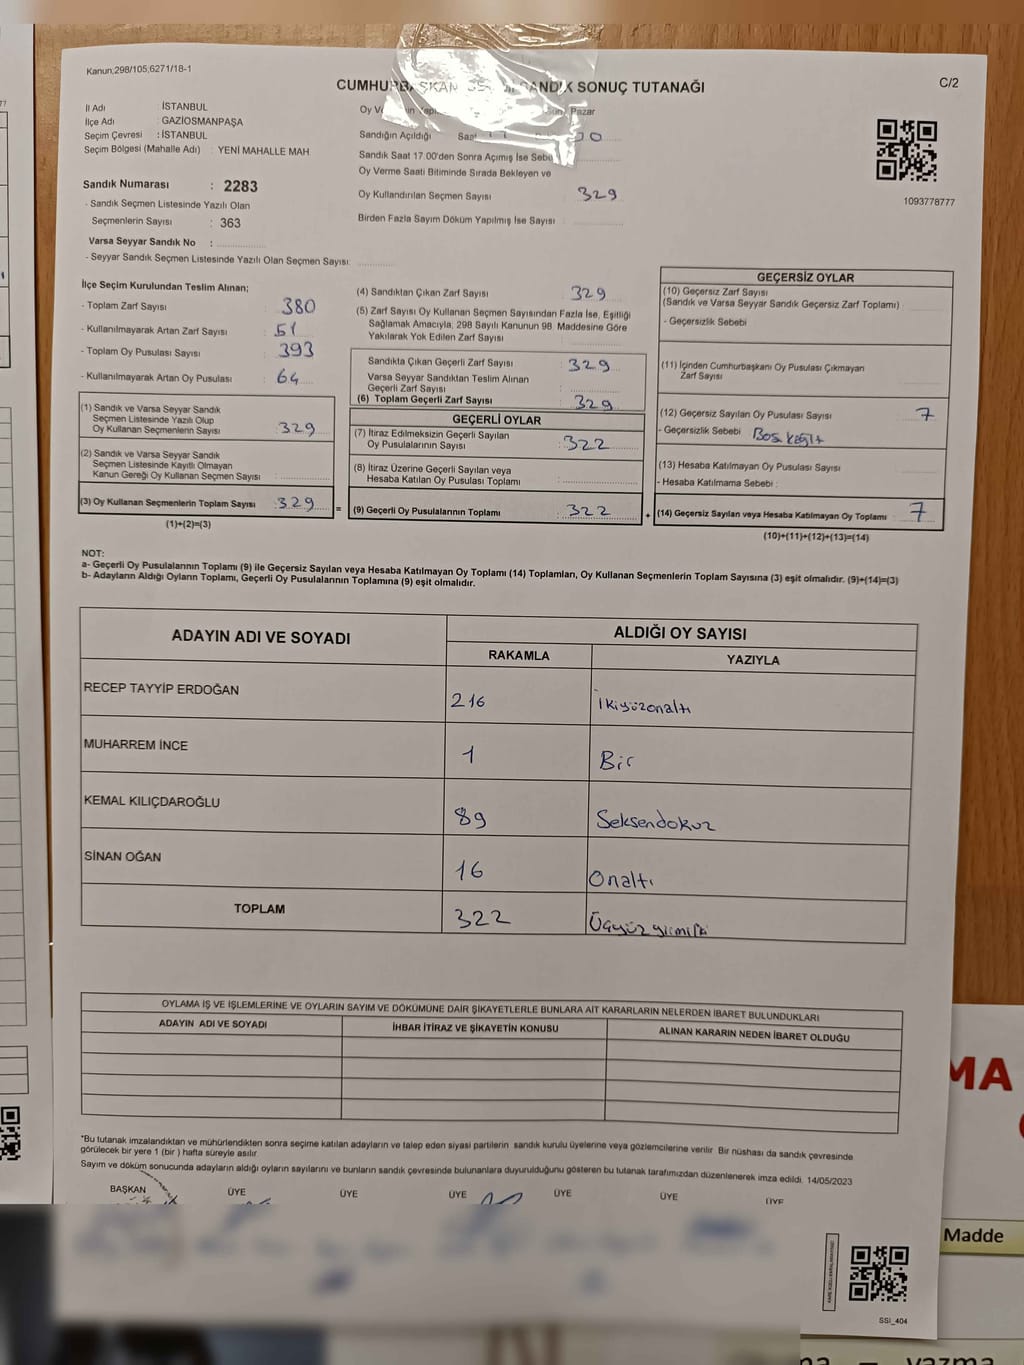 Kanun;298/105,6271/18-1
CUMHURBAŞKANI SANDIK SONUÇ TUTANAĞI
C/2
İl Adı : İSTANBUL
İlçe Adı : GAZİOSMANPAŞA
Seçim Çevresi : İSTANBUL
Seçim Bölgesi (Mahalle Adı) : YENİ MAHALLE MAH
Sandık Numarası : 2283
- Sandık Seçmen Listesinde Yazılı Olan
Seçmenlerin Sayısı : 363
Varsa Seyyar Sandık No :
- Seyyar Sandık Seçmen Listesinde Yazılı Olan Seçmen Sayısı:
Oy Pazar
Sandığın Açıldığı Saat
Sandık Saat 17.00'den Sonra Açımış İse Sebe
Oy Verme Saati Bitiminde Sırada Bekleyen ve
Oy Kullandırılan Seçmen Sayısı 329
Birden Fazla Sayım Döküm Yapılmış İse Sayısı
1093778777
İlçe Seçim Kurulundan Teslim Alınan;
- Toplam Zarf Sayısı 380
- Kullanılmayarak Artan Zarf Sayısı 51
- Toplam Oy Pusulası Sayısı 393
- Kullanılmayarak Artan Oy Pusulası 64
(1) Sandık ve Varsa Seyyar Sandık
Seçmen Listesinde Yazılı Olup
Oy Kullanan Seçmenlerin Sayısı : 329
(2) Sandık ve Varsa Seyyar Sandık
Seçmen Listesinde Kayıtlı Olmayan
Kanun Gereği Oy Kullanan Seçmen Sayısı :
(3) Oy Kullanan Seçmenlerin Toplam Sayısı : 329
(1)+(2)=(3)
=
(4) Sandıktan Çıkan Zarf Sayısı 329
(5) Zarf Sayısı Oy Kullanan Seçmen Sayısından Fazla İse, Eşitliği
Sağlamak Amacıyla, 298 Sayılı Kanunun 98 Maddesine Göre
Yakılarak Yok Edilen Zarf Sayısı
Sandıkta Çıkan Geçerli Zarf Sayısı 329
Varsa Seyyar Sandıktan Teslim Alınan
Geçerli Zarf Sayısı
(6) Toplam Geçerli Zarf Sayısı 329
GEÇERLİ OYLAR
(7) İtiraz Edilmeksizin Geçerli Sayılan
Oy Pusulalarının Sayısı : 322
(8) İtiraz Üzerine Geçerli Sayılan veya
Hesaba Katılan Oy Pusulası Toplamı :
(9) Geçerli Oy Pusulalarının Toplamı : 322
+
GEÇERSİZ OYLAR
(10) Geçersiz Zarf Sayısı
(Sandık ve Varsa Seyyar Sandık Geçersiz Zarf Toplamı) :
- Geçersizlik Sebebi
(11) İçinden Cumhurbaşkanı Oy Pusulası Çıkmayan
Zarf Sayısı
(12) Geçersiz Sayılan Oy Pusulası Sayısı 7
- Geçersizlik Sebebi Boş Kağıt
(13) Hesaba Katılmayan Oy Pusulası Sayısı
- Hesaba Katılmama Sebebi :
(14) Geçersiz Sayılan veya Hesaba Katılmayan Oy Toplamı : 7
(10)+(11)+(12)+(13)=(14)
NOT:
a- Geçerli Oy Pusulalarının Toplamı (9) ile Geçersiz Sayılan veya Hesaba Katılmayan Oy Toplamı (14) Toplamları, Oy Kullanan Seçmenlerin Toplam Sayısına (3) eşit olmalıdır. (9)+(14)=(3)
b- Adayların Aldığı Oyların Toplamı, Geçerli Oy Pusulalarının Toplamına (9) eşit olmalıdır.
ADAYIN ADI VE SOYADI
ALDIĞI OY SAYISI
RAKAMLA YAZIYLA
RECEP TAYYİP ERDOĞAN 216 İkiyüzonaltı
MUHARREM İNCE 1 Bir
KEMAL KILIÇDAROĞLU 89 Seksendokuz
SİNAN OĞAN 16 Onaltı
TOPLAM 322
OYLAMA İŞ VE İŞLEMLERİNE VE OYLARIN SAYIM VE DÖKÜMÜNE DAİR ŞİKAYETLERLE BUNLARA AİT KARARLARIN NELERDEN İBARET BULUNDUKLARI
ADAYIN ADI VE SOYADI İHBAR İTİRAZ VE ŞİKAYETİN KONUSU ALINAN KARARIN NEDEN İBARET OLDUĞU
*Bu tutanak imzalandıktan ve mühürlendikten sonra seçime katılan adayların ve talep eden siyasi partilerin sandık kurulu üyelerine veya gözlemcilerine verilir. Bir nüshası da sandık çevresinde
görülecek bir yere 1 (bir ) hafta süreyle asılır.
Sayım ve döküm sonucunda adayların aldığı oyların sayılarını ve bunların sandık çevresinde bulunanlara duyurulduğunu gösteren bu tutanak tarafımızdan düzenlenerek imza edildi. 14/05/2023
BAŞKAN ÜYE ÜYE ÜYE ÜYE ÜYE ÜYE
SSI_404
MA
Madde
yazma